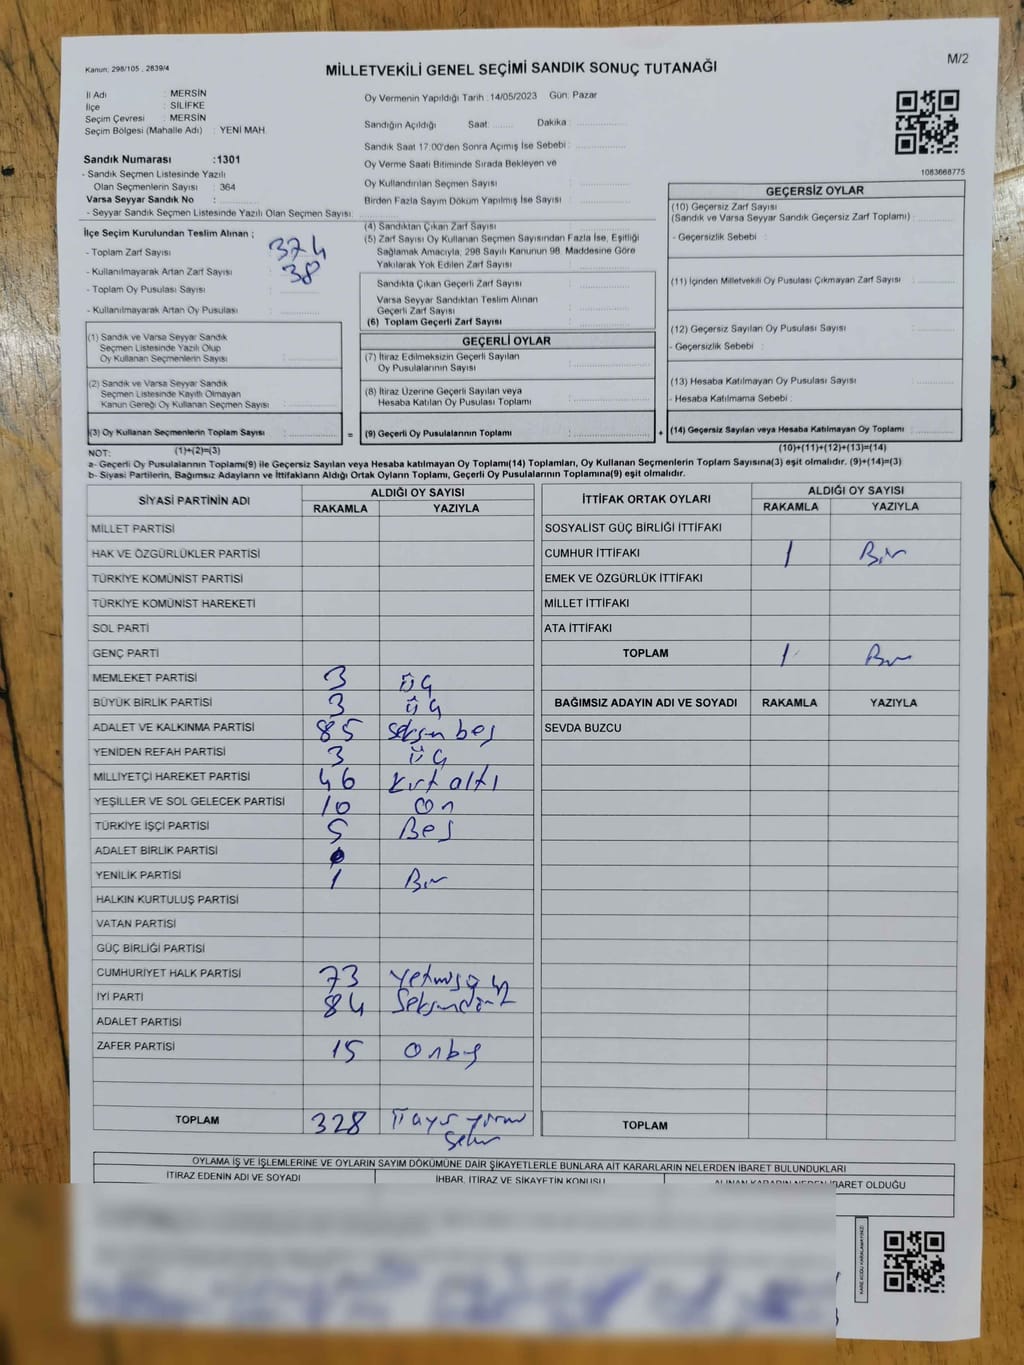 Kanun: 298/105 , 2839/4
M/2
MİLLETVEKİLİ GENEL SEÇİMİ SANDIK SONUÇ TUTANAĞI
İl Adı : MERSİN
İlçe : SİLİFKE
Seçim Çevresi : MERSİN
Seçim Bölgesi (Mahalle Adı) : YENİ MAH.
Oy Vermenin Yapıldığı Tarih :14/05/2023 Gün: Pazar
Sandığın Açıldığı Saat: ........ Dakika : ................
Sandık Saat 17:00'den Sonra Açımış İse Sebebi : ................
Oy Verme Saati Bitiminde Sırada Bekleyen ve
Oy Kullandırılan Seçmen Sayısı : ................
Birden Fazla Sayım Döküm Yapılmış İse Sayısı : ................
Sandık Numarası :1301
- Sandık Seçmen Listesinde Yazılı
Olan Seçmenlerin Sayısı : 364
Varsa Seyyar Sandık No : ............
- Seyyar Sandık Seçmen Listesinde Yazılı Olan Seçmen Sayısı: ............
1083668775
İlçe Seçim Kurulundan Teslim Alınan ;
- Toplam Zarf Sayısı : 374
- Kullanılmayarak Artan Zarf Sayısı : 38
- Toplam Oy Pusulası Sayısı : ............
- Kullanılmayarak Artan Oy Pusulası : ............
(1) Sandık ve Varsa Seyyar Sandık
Seçmen Listesinde Yazılı Olup
Oy Kullanan Seçmenlerin Sayısı : ............
(2) Sandık ve Varsa Seyyar Sandık
Seçmen Listesinde Kayıtlı Olmayan
Kanun Gereği Oy Kullanan Seçmen Sayısı : ............
(3) Oy Kullanan Seçmenlerin Toplam Sayısı : ............
(4) Sandıktan Çıkan Zarf Sayısı : ............
(5) Zarf Sayısı Oy Kullanan Seçmen Sayısından Fazla İse, Eşitliği
Sağlamak Amacıyla, 298 Sayılı Kanunun 98. Maddesine Göre
Yakılarak Yok Edilen Zarf Sayısı : ............
Sandıkta Çıkan Geçerli Zarf Sayısı : ............
Varsa Seyyar Sandıktan Teslim Alınan
Geçerli Zarf Sayısı : ............
(6) Toplam Geçerli Zarf Sayısı : ............
GEÇERLİ OYLAR
(7) İtiraz Edilmeksizin Geçerli Sayılan
Oy Pusulalarının Sayısı : ............
(8) İtiraz Üzerine Geçerli Sayılan veya
Hesaba Katılan Oy Pusulası Toplamı : ............
= (9) Geçerli Oy Pusulalarının Toplamı : ............
GEÇERSİZ OYLAR
(10) Geçersiz Zarf Sayısı
(Sandık ve Varsa Seyyar Sandık Geçersiz Zarf Toplamı) : ............
- Geçersizlik Sebebi :
(11) İçinden Milletvekili Oy Pusulası Çıkmayan Zarf Sayısı : ............
(12) Geçersiz Sayılan Oy Pusulası Sayısı : ............
- Geçersizlik Sebebi :
(13) Hesaba Katılmayan Oy Pusulası Sayısı : ............
- Hesaba Katılmama Sebebi :
+ (14) Geçersiz Sayılan veya Hesaba Katılmayan Oy Toplamı : ............
NOT: (1)+(2)=(3) (10)+(11)+(12)+(13)=(14)
a- Geçerli Oy Pusulalarının Toplamı(9) ile Geçersiz Sayılan veya Hesaba katılmayan Oy Toplamı(14) Toplamları, Oy Kullanan Seçmenlerin Toplam Sayısına(3) eşit olmalıdır. (9)+(14)=(3)
b- Siyasi Partilerin, Bağımsız Adayların ve İttifakların Aldığı Oyların Toplamı, Geçerli Oy Pusulalarının Toplamına(9) eşit olmalıdır.
SİYASİ PARTİNİN ADI ALDIĞI OY SAYISI
RAKAMLA YAZIYLA
MİLLET PARTİSİ
HAK VE ÖZGÜRLÜKLER PARTİSİ
TÜRKİYE KOMÜNİST PARTİSİ
TÜRKİYE KOMÜNİST HAREKETİ
SOL PARTİ
GENÇ PARTİ
MEMLEKET PARTİSİ 3 üç
BÜYÜK BİRLİK PARTİSİ 3 üç
ADALET VE KALKINMA PARTİSİ 85 seksen beş
YENİDEN REFAH PARTİSİ 3 üç
MİLLİYETÇİ HAREKET PARTİSİ 46 kırk altı
YEŞİLLER VE SOL GELECEK PARTİSİ 10 On
TÜRKİYE İŞÇİ PARTİSİ 5 Beş
ADALET BİRLİK PARTİSİ
YENİLİK PARTİSİ 1 Bir
HALKIN KURTULUŞ PARTİSİ
VATAN PARTİSİ
GÜÇ BİRLİĞİ PARTİSİ
CUMHURİYET HALK PARTİSİ 73 Yetmişüç
İYİ PARTİ 84 Seksendört
ADALET PARTİSİ
ZAFER PARTİSİ 15 Onbeş
TOPLAM 328
İTTİFAK ORTAK OYLARI ALDIĞI OY SAYISI
RAKAMLA YAZIYLA
SOSYALİST GÜÇ BİRLİĞİ İTTİFAKI
CUMHUR İTTİFAKI 1 Bir
EMEK VE ÖZGÜRLÜK İTTİFAKI
MİLLET İTTİFAKI
ATA İTTİFAKI
TOPLAM 1 Bir
BAĞIMSIZ ADAYIN ADI VE SOYADI RAKAMLA YAZIYLA
SEVDA BUZCU
TOPLAM
OYLAMA İŞ VE İŞLEMLERİNE VE OYLARIN SAYIM DÖKÜMÜNE DAİR ŞİKAYETLERLE BUNLARA AİT KARARLARIN NELERDEN İBARET BULUNDUKLARI
İTİRAZ EDENİN ADI VE SOYADI İHBAR, İTİRAZ VE ŞİKAYETİN KONUSU ALINAN KARARIN NEDEN İBARET OLDUĞU